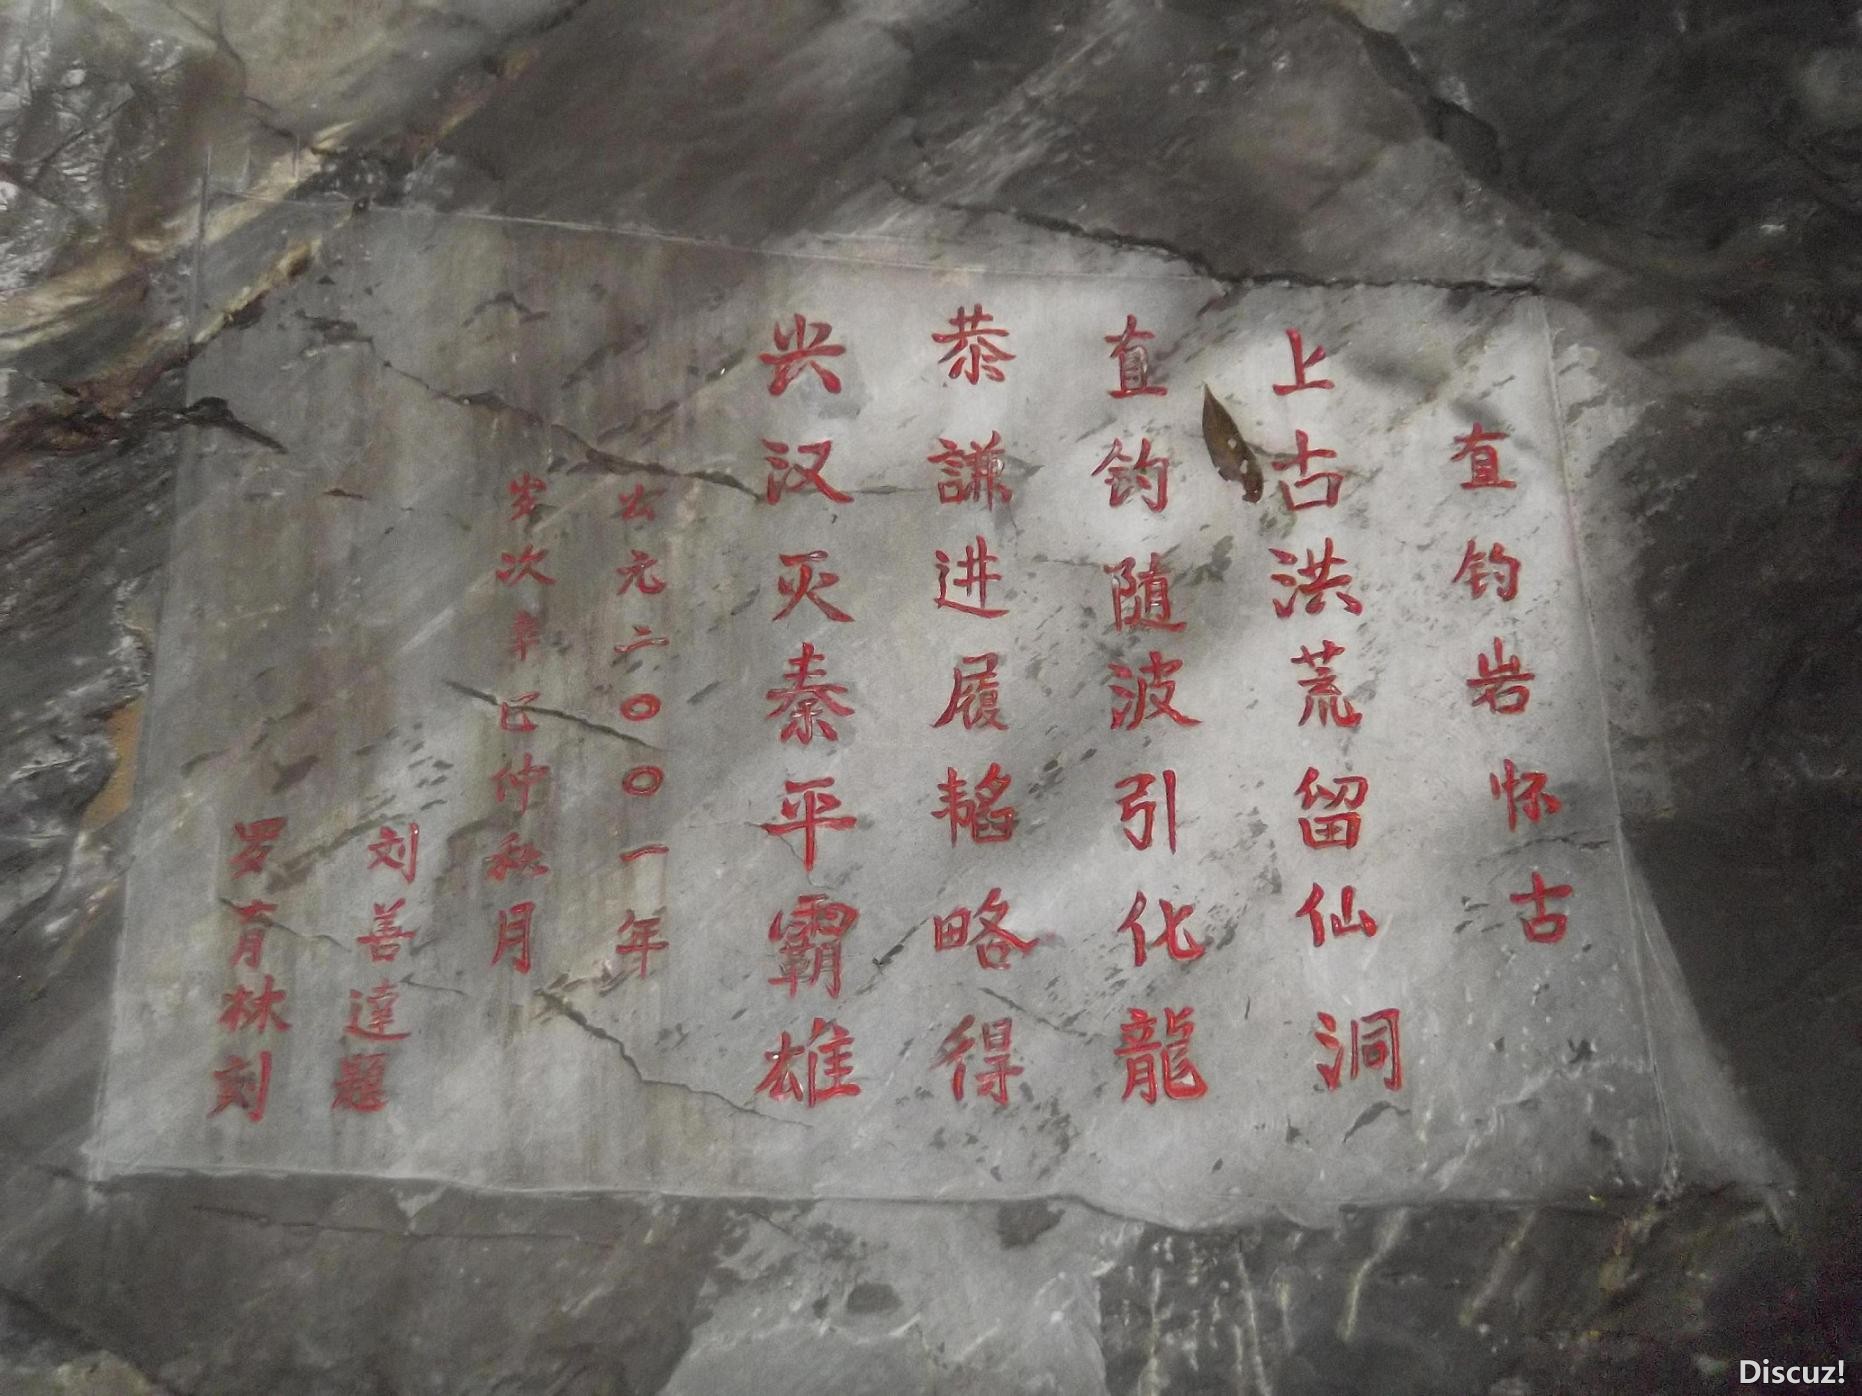 直钓岩怀古
上古洪荒留仙洞
直钓随波引化龍
恭謙进履韬略得
兴汉灭秦平霸雄
公元二〇〇一年
岁次辛巳仲秋月
刘善達题
罗育林刻
Discuz!